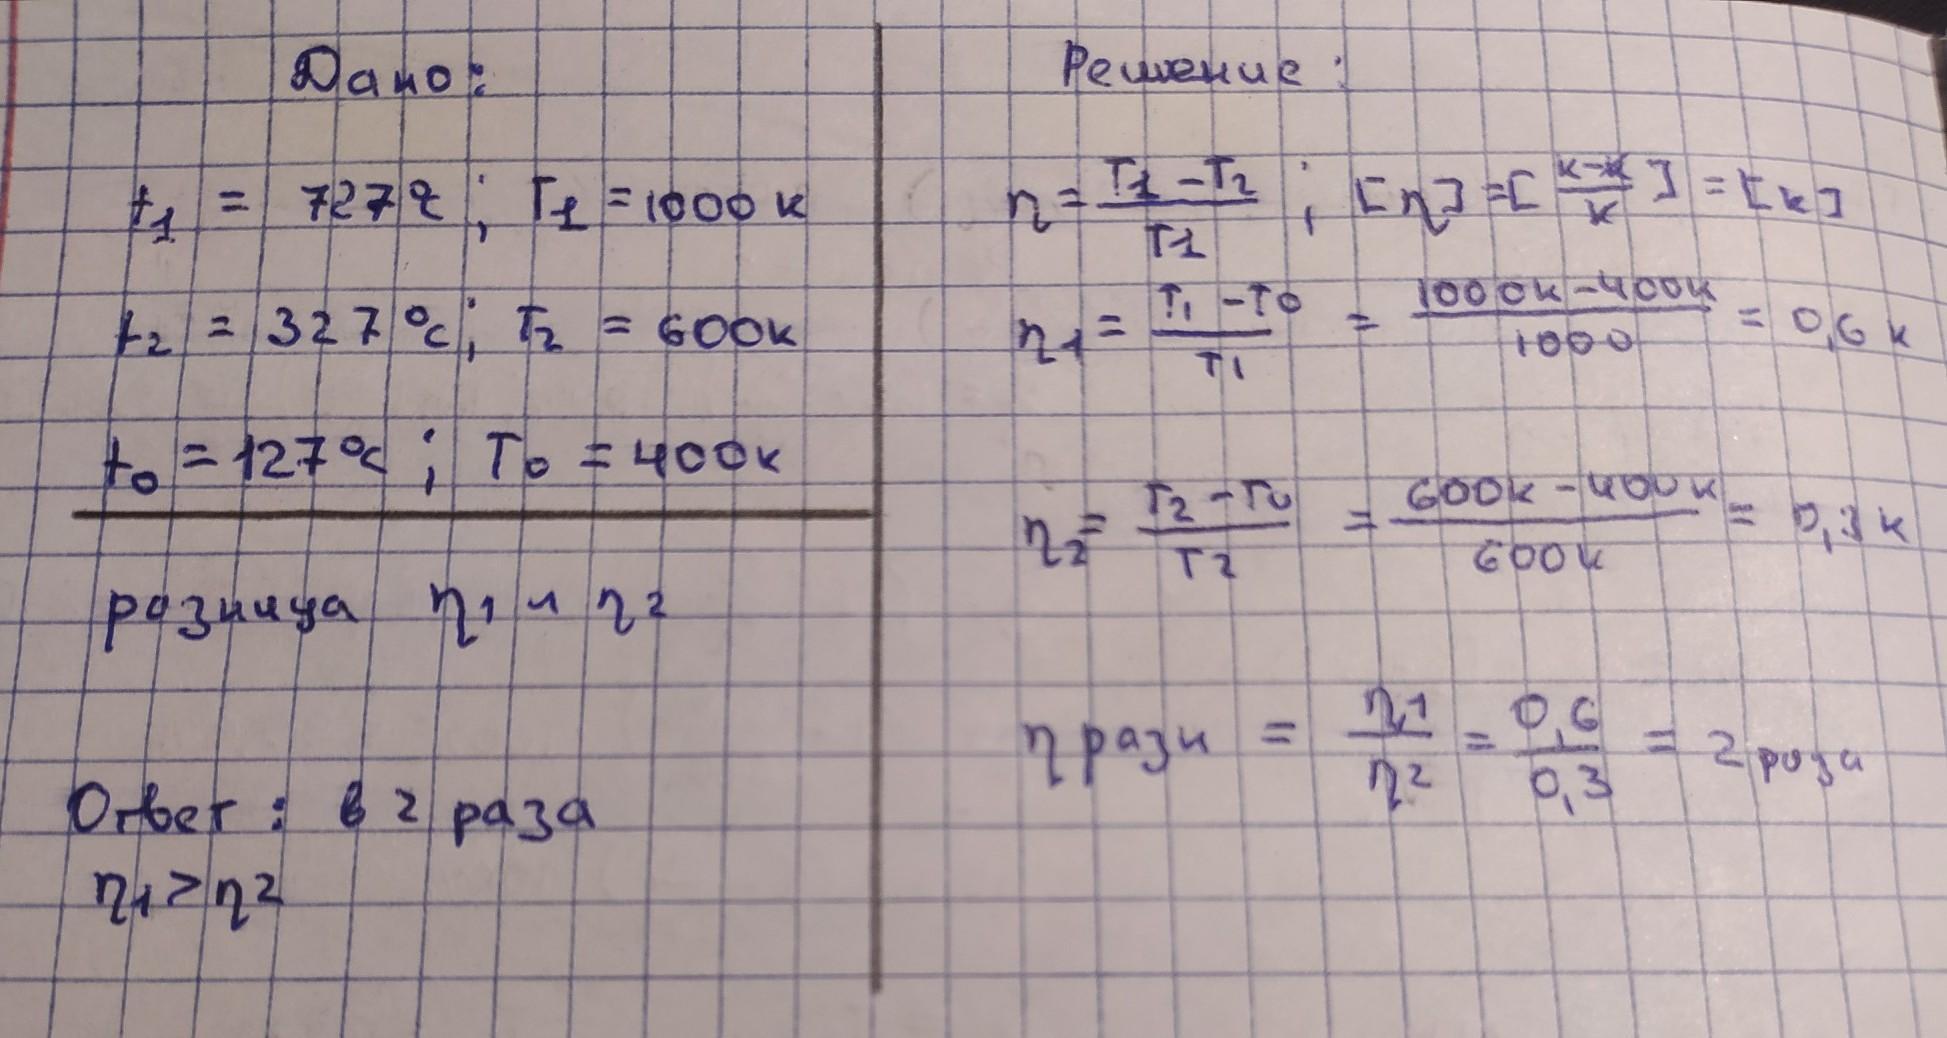 Дано:
t₁ = 727°C ; T₁ = 1000 К
t₂ = 327 °C ; T₂ = 600К
t₀ = 127°C ; T₀ = 400К
разница η₁ и η₂
Ответ: в 2 раза
η₁ > η₂
Решение:
η = (T₁ - T₂)/T₁ ; [η] = [(К-К)/К] = [К]
η₁ = (T₁ - T₀)/T₁ = (1000К - 400К)/1000 = 0,6 К
η₂ = (T₂ - T₀)/T₂ = (600К - 400К)/600К = 0,3 К
η разн = η₁/η₂ = 0,6/0,3 = 2 раза